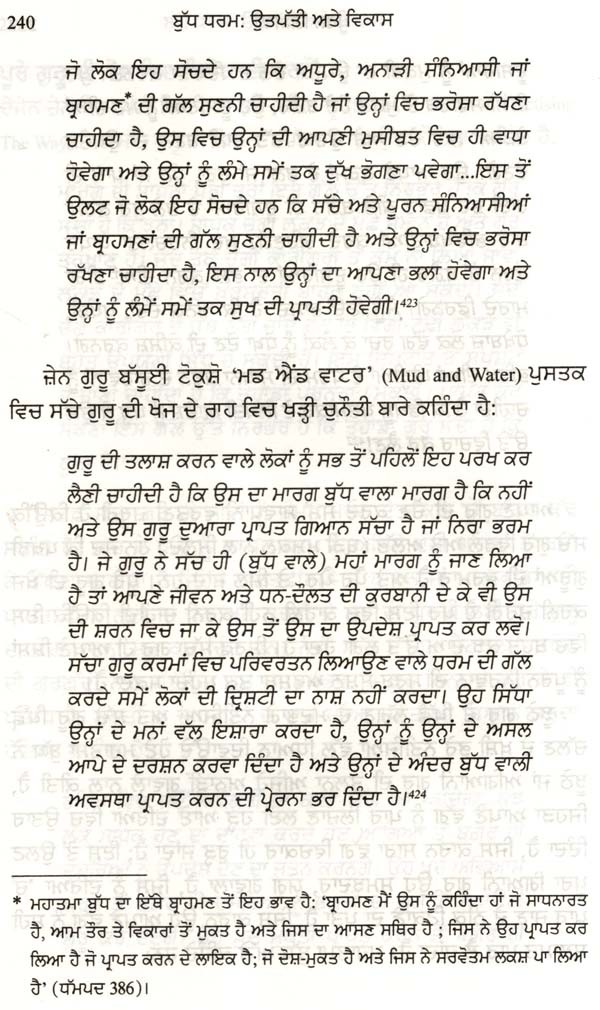 240
ਬੁੱਧ ਧਰਮ: ਉਤਪੱਤੀ ਅਤੇ ਵਿਕਾਸ
ਜੋ ਲੋਕ ਇਹ ਸੋਚਦੇ ਹਨ ਕਿ ਅਧੂਰੇ, ਅਨਾੜੀ ਸੰਨਿਆਸੀ ਜਾਂ
ਬ੍ਰਾਹਮਣ* ਦੀ ਗੱਲ ਸੁਣਨੀ ਚਾਹੀਦੀ ਹੈ ਜਾਂ ਉਨ੍ਹਾਂ ਵਿਚ ਭਰੋਸਾ ਰੱਖਣਾ
ਚਾਹੀਦਾ ਹੈ, ਉਸ ਵਿਚ ਉਨ੍ਹਾਂ ਦੀ ਆਪਣੀ ਮੁਸੀਬਤ ਵਿਚ ਹੀ ਵਾਧਾ
ਹੋਵੇਗਾ ਅਤੇ ਉਨ੍ਹਾਂ ਨੂੰ ਲੰਮੇ ਸਮੇਂ ਤਕ ਦੁੱਖ ਭੋਗਣਾ ਪਵੇਗਾ...ਇਸ ਤੋਂ
ਉਲਟ ਜੋ ਲੋਕ ਇਹ ਸੋਚਦੇ ਹਨ ਕਿ ਸੱਚੇ ਅਤੇ ਪੂਰਨ ਸੰਨਿਆਸੀਆਂ
ਜਾਂ ਬ੍ਰਾਹਮਣਾਂ ਦੀ ਗੱਲ ਸੁਣਨੀ ਚਾਹੀਦੀ ਹੈ ਅਤੇ ਉਨ੍ਹਾਂ ਵਿਚ ਭਰੋਸਾ
ਰੱਖਣਾ ਚਾਹੀਦਾ ਹੈ, ਇਸ ਨਾਲ ਉਨ੍ਹਾਂ ਦਾ ਆਪਣਾ ਭਲਾ ਹੋਵੇਗਾ ਅਤੇ
ਉਨ੍ਹਾਂ ਨੂੰ ਲੰਮੇਂ ਸਮੇਂ ਤਕ ਸੁਖ ਦੀ ਪ੍ਰਾਪਤੀ ਹੋਵੇਗੀ।423
ਜ਼ੇਨ ਗੁਰੂ ਬੱਸੂਈ ਟੋਕੁਸ਼ੋ ‘ਮਡ ਐਂਡ ਵਾਟਰ’ (Mud and Water) ਪੁਸਤਕ
ਵਿਚ ਸੱਚੇ ਗੁਰੂ ਦੀ ਖੋਜ ਦੇ ਰਾਹ ਵਿਚ ਖੜ੍ਹੀ ਚੁਨੌਤੀ ਬਾਰੇ ਕਹਿੰਦਾ ਹੈ:
ਗੁਰੂ ਦੀ ਤਲਾਸ਼ ਕਰਨ ਵਾਲੇ ਲੋਕਾਂ ਨੂੰ ਸਭ ਤੋਂ ਪਹਿਲੋਂ ਇਹ ਪਰਖ ਕਰ
ਲੈਣੀ ਚਾਹੀਦੀ ਹੈ ਕਿ ਉਸ ਦਾ ਮਾਰਗ ਬੁੱਧ ਵਾਲਾ ਮਾਰਗ ਹੈ ਕਿ ਨਹੀਂ
ਅਤੇ ਉਸ ਗੁਰੂ ਦੁਆਰਾ ਪ੍ਰਾਪਤ ਗਿਆਨ ਸੱਚਾ ਹੈ ਜਾਂ ਨਿਰਾ ਭਰਮ
ਹੈ। ਜੇ ਗੁਰੂ ਨੇ ਸੱਚ ਹੀ (ਬੁੱਧ ਵਾਲੇ) ਮਹਾਂ ਮਾਰਗ ਨੂੰ ਜਾਣ ਲਿਆ
ਹੈ ਤਾਂ ਆਪਣੇ ਜੀਵਨ ਅਤੇ ਧਨ-ਦੌਲਤ ਦੀ ਕੁਰਬਾਨੀ ਦੇ ਕੇ ਵੀ ਉਸ
ਦੀ ਸ਼ਰਨ ਵਿਚ ਜਾ ਕੇ ਉਸ ਤੋਂ ਉਸ ਦਾ ਉਪਦੇਸ਼ ਪ੍ਰਾਪਤ ਕਰ ਲਵੋ।
ਸੱਚਾ ਗੁਰੂ ਕਰਮਾਂ ਵਿਚ ਪਰਿਵਰਤਨ ਲਿਆਉਣ ਵਾਲੇ ਧਰਮ ਦੀ ਗੱਲ
ਕਰਦੇ ਸਮੇਂ ਲੋਕਾਂ ਦੀ ਦ੍ਰਿਸ਼ਟੀ ਦਾ ਨਾਸ਼ ਨਹੀਂ ਕਰਦਾ। ਉਹ ਸਿੱਧਾ
ਉਨ੍ਹਾਂ ਦੇ ਮਨਾਂ ਵੱਲ ਇਸ਼ਾਰਾ ਕਰਦਾ ਹੈ, ਉਨ੍ਹਾਂ ਨੂੰ ਉਨ੍ਹਾਂ ਦੇ ਅਸਲ
ਆਪੇ ਦੇ ਦਰਸ਼ਨ ਕਰਵਾ ਦਿੰਦਾ ਹੈ ਅਤੇ ਉਨ੍ਹਾਂ ਦੇ ਅੰਦਰ ਬੁੱਧ ਵਾਲੀ
ਅਵਸਥਾ ਪ੍ਰਾਪਤ ਕਰਨ ਦੀ ਪ੍ਰੇਰਨਾ ਭਰ ਦਿੰਦਾ ਹੈ।424
* ਮਹਾਤਮਾ ਬੁੱਧ ਦਾ ਇੱਥੇ ਬ੍ਰਾਹਮਣ ਤੋਂ ਇਹ ਭਾਵ ਹੈ: ‘ਬ੍ਰਾਹਮਣ ਮੈਂ ਉਸ ਨੂੰ ਕਹਿੰਦਾ ਹਾਂ ਜੋ ਸਾਧਨਾਰਤ
ਹੈ, ਆਮ ਤੌਰ ਤੇ ਵਿਕਾਰਾਂ ਤੋਂ ਮੁਕਤ ਹੈ ਅਤੇ ਜਿਸ ਦਾ ਆਸਣ ਸਥਿਰ ਹੈ ; ਜਿਸ ਨੇ ਉਹ ਪ੍ਰਾਪਤ ਕਰ
ਲਿਆ ਹੈ ਜੋ ਪ੍ਰਾਪਤ ਕਰਨ ਦੇ ਲਾਇਕ ਹੈ; ਜੋ ਦੋਸ਼-ਮੁਕਤ ਹੈ ਅਤੇ ਜਿਸ ਨੇ ਸਰਵੋਤਮ ਲਕਸ਼ ਪਾ ਲਿਆ
ਹੈ’ (ਧੱਮਪਦ 386)।